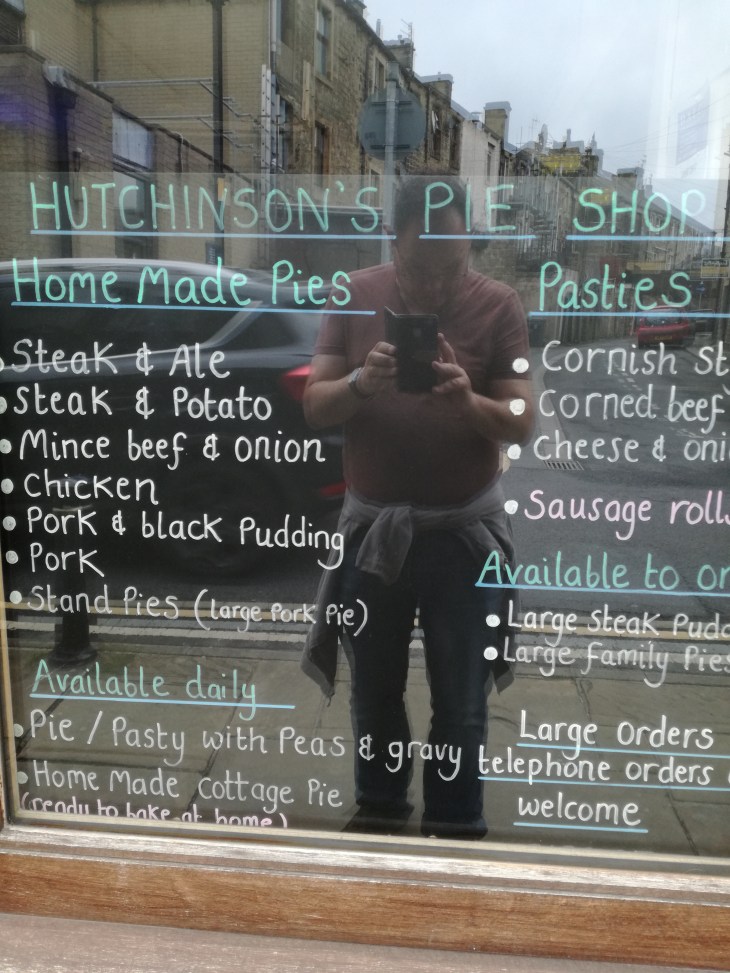 HUTCHINSON'S PIE SHOP
Home Made Pies
• Steak & Ale
• Steak & Potato
• Mince beef & onion
• Chicken
• Pork & black Pudding
• Pork
• Stand Pies (large Pork Pie)
Available daily
• Pie / Pasty with Peas & gravy
• Home Made Cottage Pie
(ready to bake at home)
Pasties
• Cornish
• Corned beef
• Cheese &
• Sausage rolls
Available to
• Large Steak
• Large Family Pies
Large Orders
telephone orders
welcome